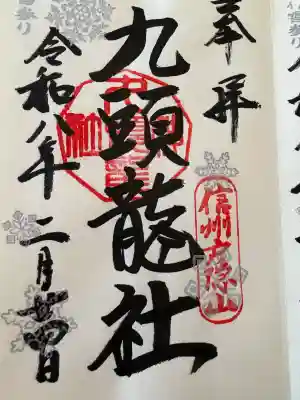 奉拝
信州戸隠山
九頭龍社
令和八年二月廿四日